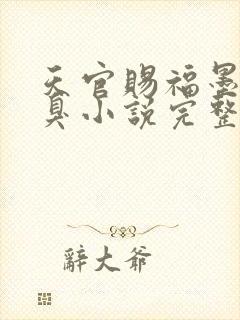 天官赐福墨
臭小说完整
辭大爷